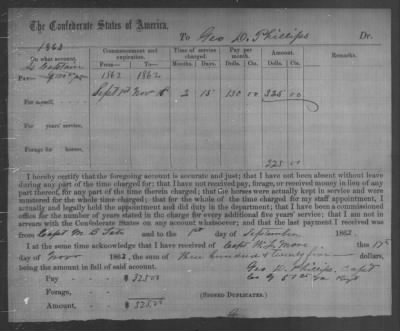 The Confederate States of America,
To Geo D. Phillips Dr.
1862
On what account.
Commencement and expiration.
From— To—
Time of service charged:
Months. Days.
Pay per month.
Dolls. Cts.
Amount.
Dolls. Cts.
Remarks.
Pay—
1862 1862
Sept 1st Nov 15 2 15 130 00 325 00
For myself,
For years' service,
Forage for horses,
325 00
I hereby certify that the foregoing account is accurate and just; that I have not been absent without leave
during any part of the time charged for; that I have not received pay, forage, or received money in lieu of any
part thereof, for any part of the time therein charged; that the horses were actually kept in service and were
mustered for the whole time charged; that for the whole of the time charged for my staff appointment, I
actually and legally held the appointment and did duty in the department; that I have been a commissioned
officer for the number of years stated in the charge for every additional five years' service; that I am not in
arrears with the Confederate States on any account whatsoever; and that the last payment I received was
from Capt M. B. and to the 1st day of September 1862.
I at the same time acknowledge that I have received of Capt this 17th
day of Nov 1862, the sum of Three hundred & twenty five dollars,
being the amount in full of said account.
Pay - $ 325.00
Geo D. Phillips, Capt
Forage,
Co
Amount - $ 325.00
[SIGNED DUPLICATES.]